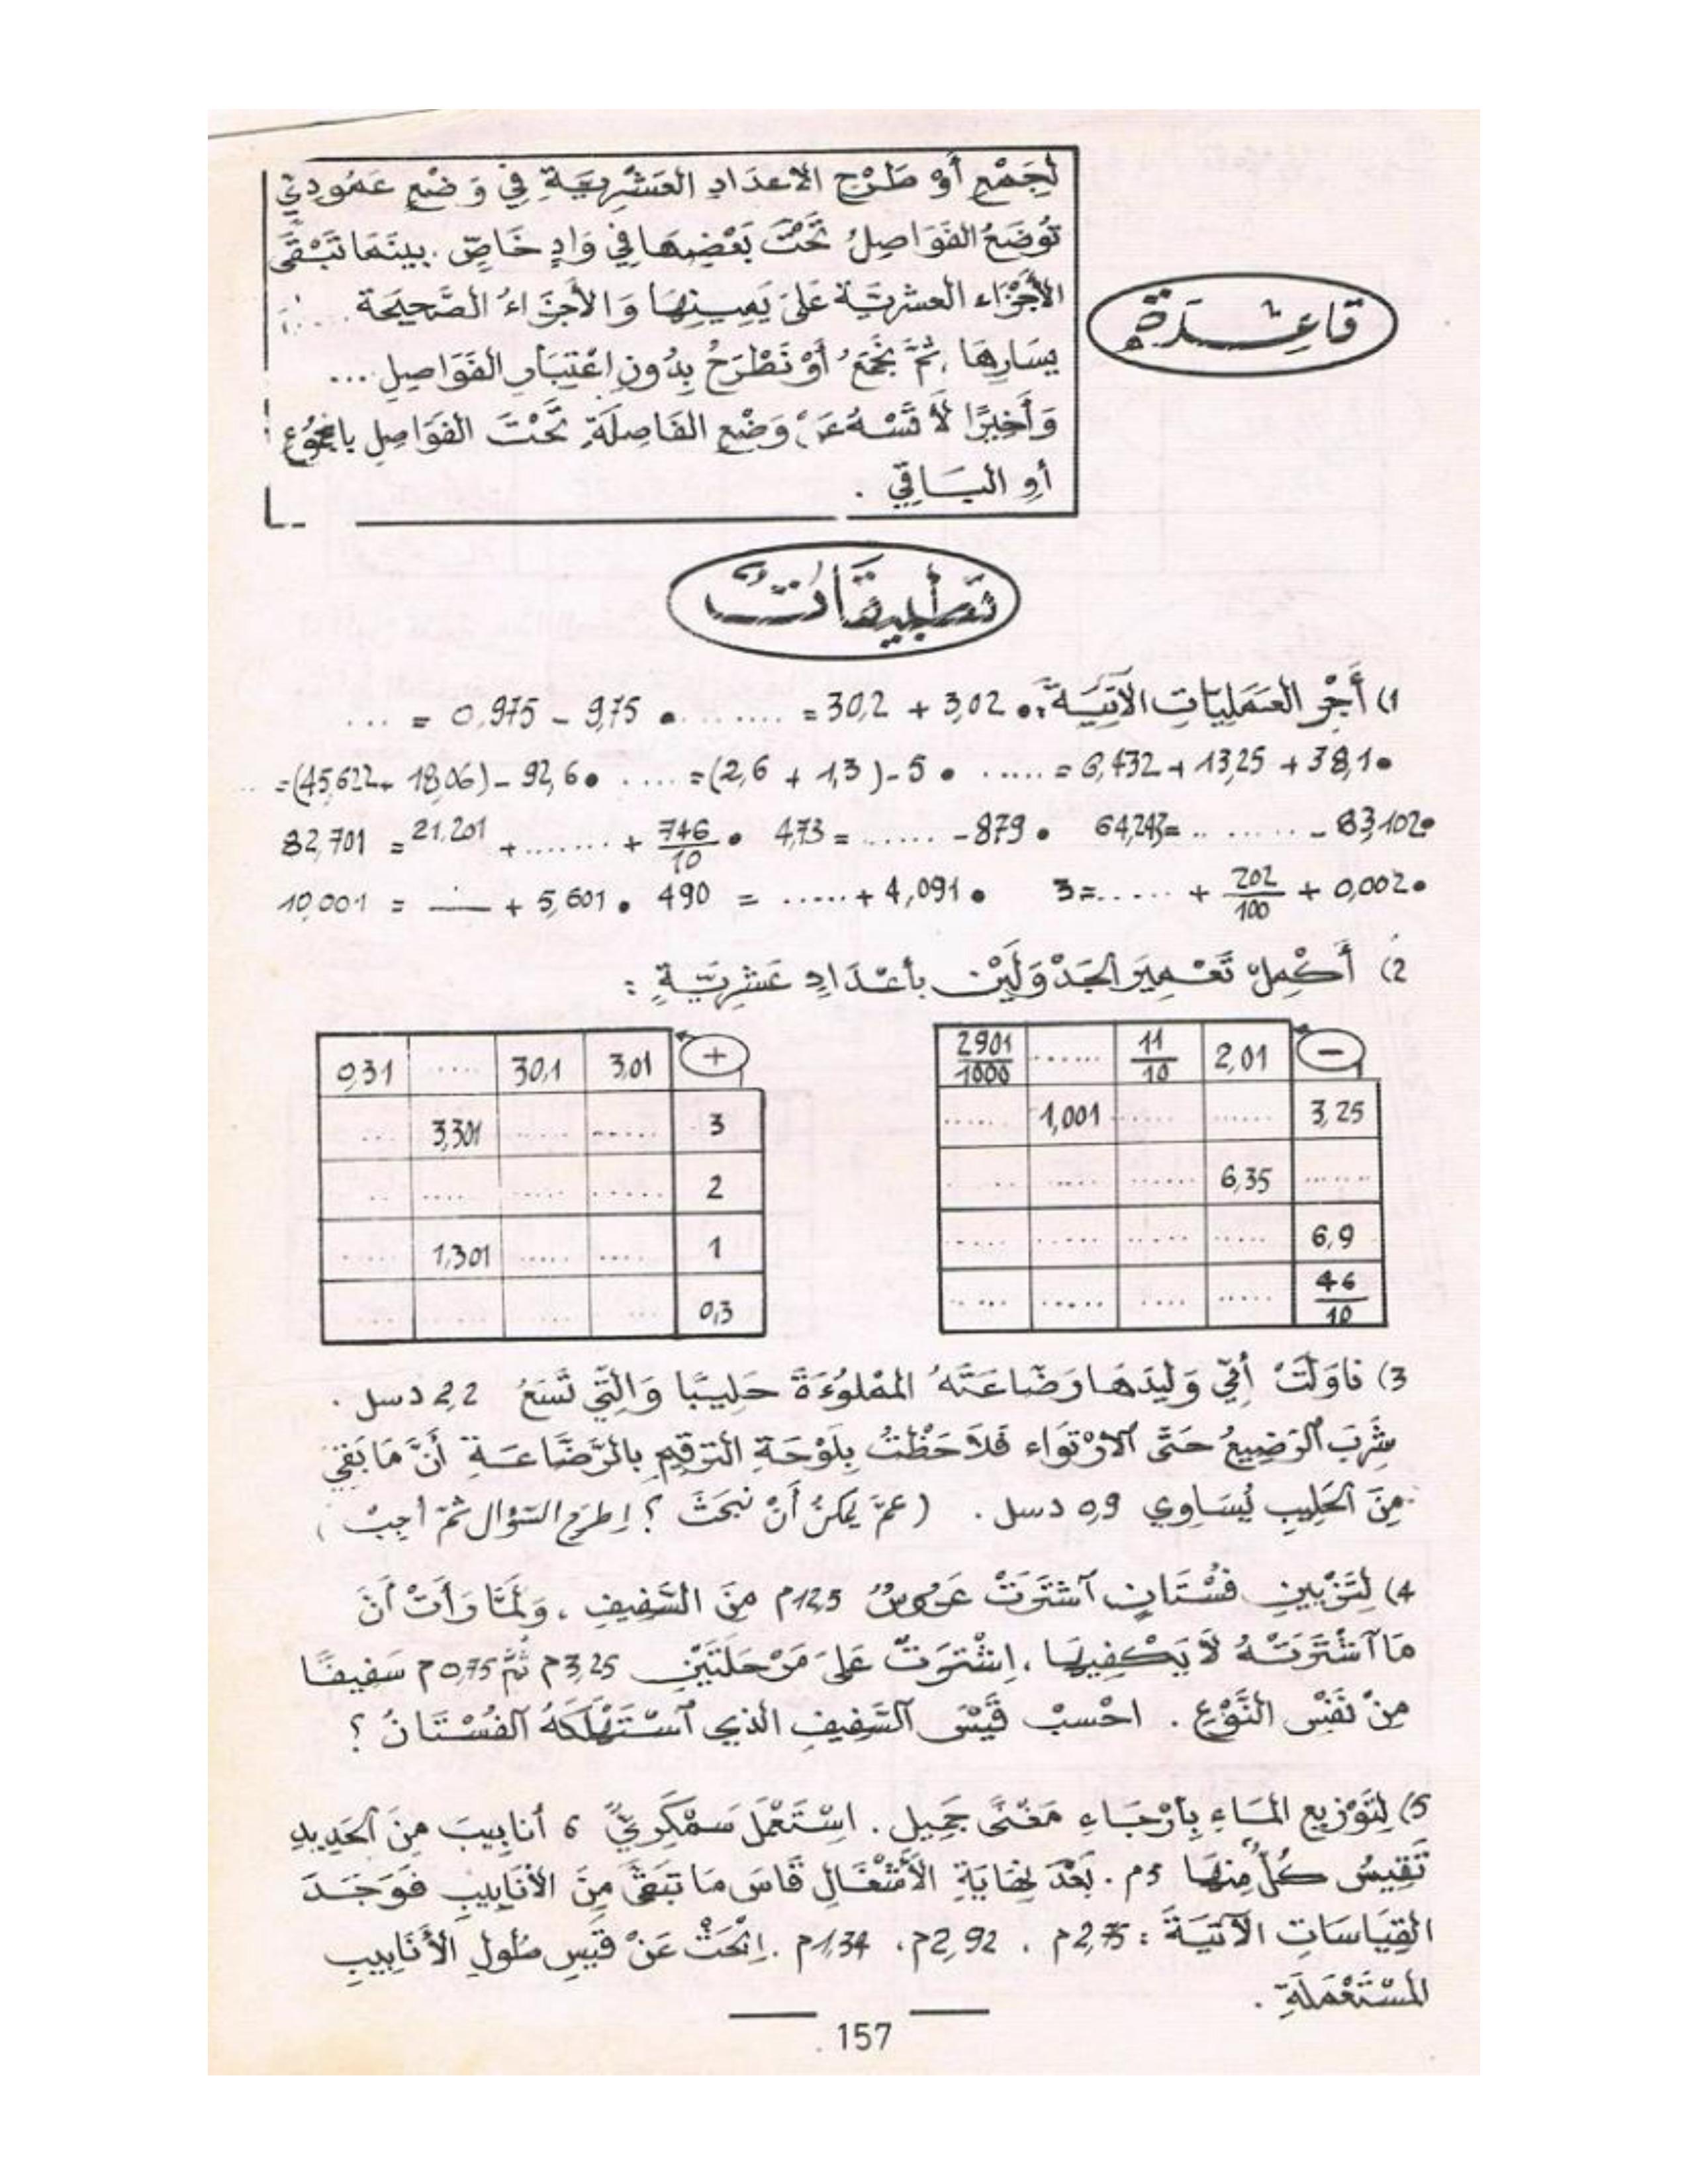 لِجَمْعِ أَوْ طَرْحِ الأعْدَادِ العَشْرِيَّةِ فِي وَضْعٍ عَمُودِيٍّ
تُوضَعُ الفَوَاصِلُ تَحْتَ بَعْضِهَا فِي وَادٍ خَاصٍّ . بينَمَا تَبْقَى
الأَجْزَاء العشريّة عَلَى يَمِينِهَا وَالأَجْزَاءُ الصَّحِيحَة ....
يسَارِهَا ، ثُمَّ نَجْمَعُ أَوْ نَطْرَحُ بِدُونِ اعْتِبَارِ الفَوَاصِلِ ...
وَأَخِيرًا لاَ نَسْهُ عَنْ وَضْعِ الفَاصِلَةِ تَحْتَ الفَوَاصِلِ بالمجْمُوعِ
أوِ البَاقِي .
قَاعِدَة
تَطْبِيقَاتٌ
1) أَجْرِ العَمَلِيَّاتِ الآتِيَةَ : • 3,02 + 30,2 = ........ • 9,75 - 0,975 = ...
• 38,1 + 13,25 + 6,432 = ..... • 5 - (1,3 + 2,6) = ..... • 92,6 - (18,06 + 45,622) = ..
• 83,102 - ........ = 64,247 • 879 - ...... = 4,73 • 746/10 + ....... + 21,201 = 82,701
• 0,002 + 202/100 + ...... = 3 • 4,091 + ..... = 490 • 5,601 + ... = 10,001
2) أَكْمِلْ تَعْمِيرَ الجَدْوَلَيْنِ بأعْدَادٍ عَشْرِيَّةٍ :
- 2,01 11/10 ...... 2901/1000
3,25 ...... ...... 1,001 ......
....... 6,35 ...... ..... ....
6,9 ..... ...... ..... .....
46/10 ..... .... ..... .....
+ 3,01 30,1 ..... 0,31
3 ...... ...... 3,301 ...
2 ...... ..... ..... ..
1 .... ..... 1,301 .....
0,3 ... .... ..... ...
3) نَاوَلَتْ أُمِّي وَلِيدَهَا رَضَّاعَتَهُ المَمْلُوءَةَ حَلِيبًا وَالَّتِي تَسَعُ 2,2 دسل .
شَرِبَ الرَضِيعُ حَتَّى الارْتوَاء فَلاَحَظْتُ بِلَوْحَةِ التَرقِيمِ بالرَّضَّاعَةِ أَنَّ مَا بَقِيَ
مِنَ الحَلِيبِ يُسَاوِي 0,9 دسل . ( عمَّ يُمْكِنُ أَنْ نبحَثَ ؟ اِطرَحِ السّؤال ثمّ أجِبْ )
4) لِتَزْيِينِ فُسْتَانٍ آشْتَرَتْ عَرُوسٌ 12,5م مِنَ السَّفِيفِ ، وَلَمَّا رَأَتْ أَنَّ
مَا آشْتَرَتْهُ لاَ يَكْفِيهَا ، اِشْتَرَتْ عَلَى مَرْحَلَتَيْنِ 3,25م ثُمَّ 0,75م سَفِيفًا
مِنْ نَفْسِ النَّوْعِ . احْسبْ قَيْسَ السَّفِيفِ الذي آسْتَهْلَكَهُ الفُسْتَانُ ؟
5) لِتَوْزِيعِ المَاءِ بِأَرْجَاءِ مَغْنًى جَمِيل . اسْتَعْمَلَ سَمْكَرِيٌّ 6 أنابِيبَ مِنَ الحَدِيدِ
تَقِيسُ كُلٌّ مِنْهَا 5م . بَعْدَ نِهَايَةِ الأَشْغَالِ قَاسَ مَا تَبَقَّى مِنَ الأَنَابِيبِ فَوَجَدَ
القِيَاسَاتِ الآتِيَةَ : 2,75م ، 2,92م ، 1,34م . اِبْحَثْ عَنْ قَيْسِ طُولِ الأَنَابِيبِ
المُسْتَعْمَلَةِ .
157